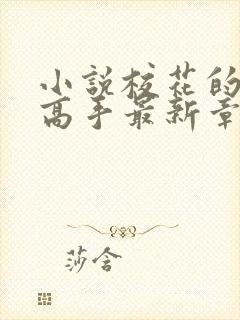 小説校花的
高手最新章
莎含